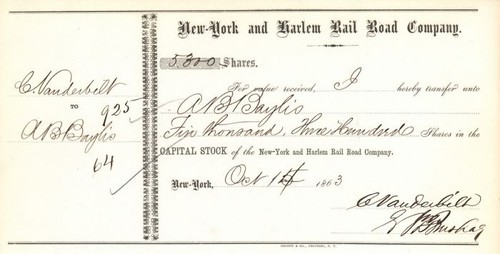 New-York and Harlem Rail Road Company.
5,300 Shares.
C Vanderbelt
TO
925
A B Baylis
64
For value received, I hereby transfer unto
A B Baylis
Five thousand Three Hundred Shares in the
CAPITAL STOCK of the New-York and Harlem Rail Road Company.
New-York, Oct 14 1863
C Vanderbilt